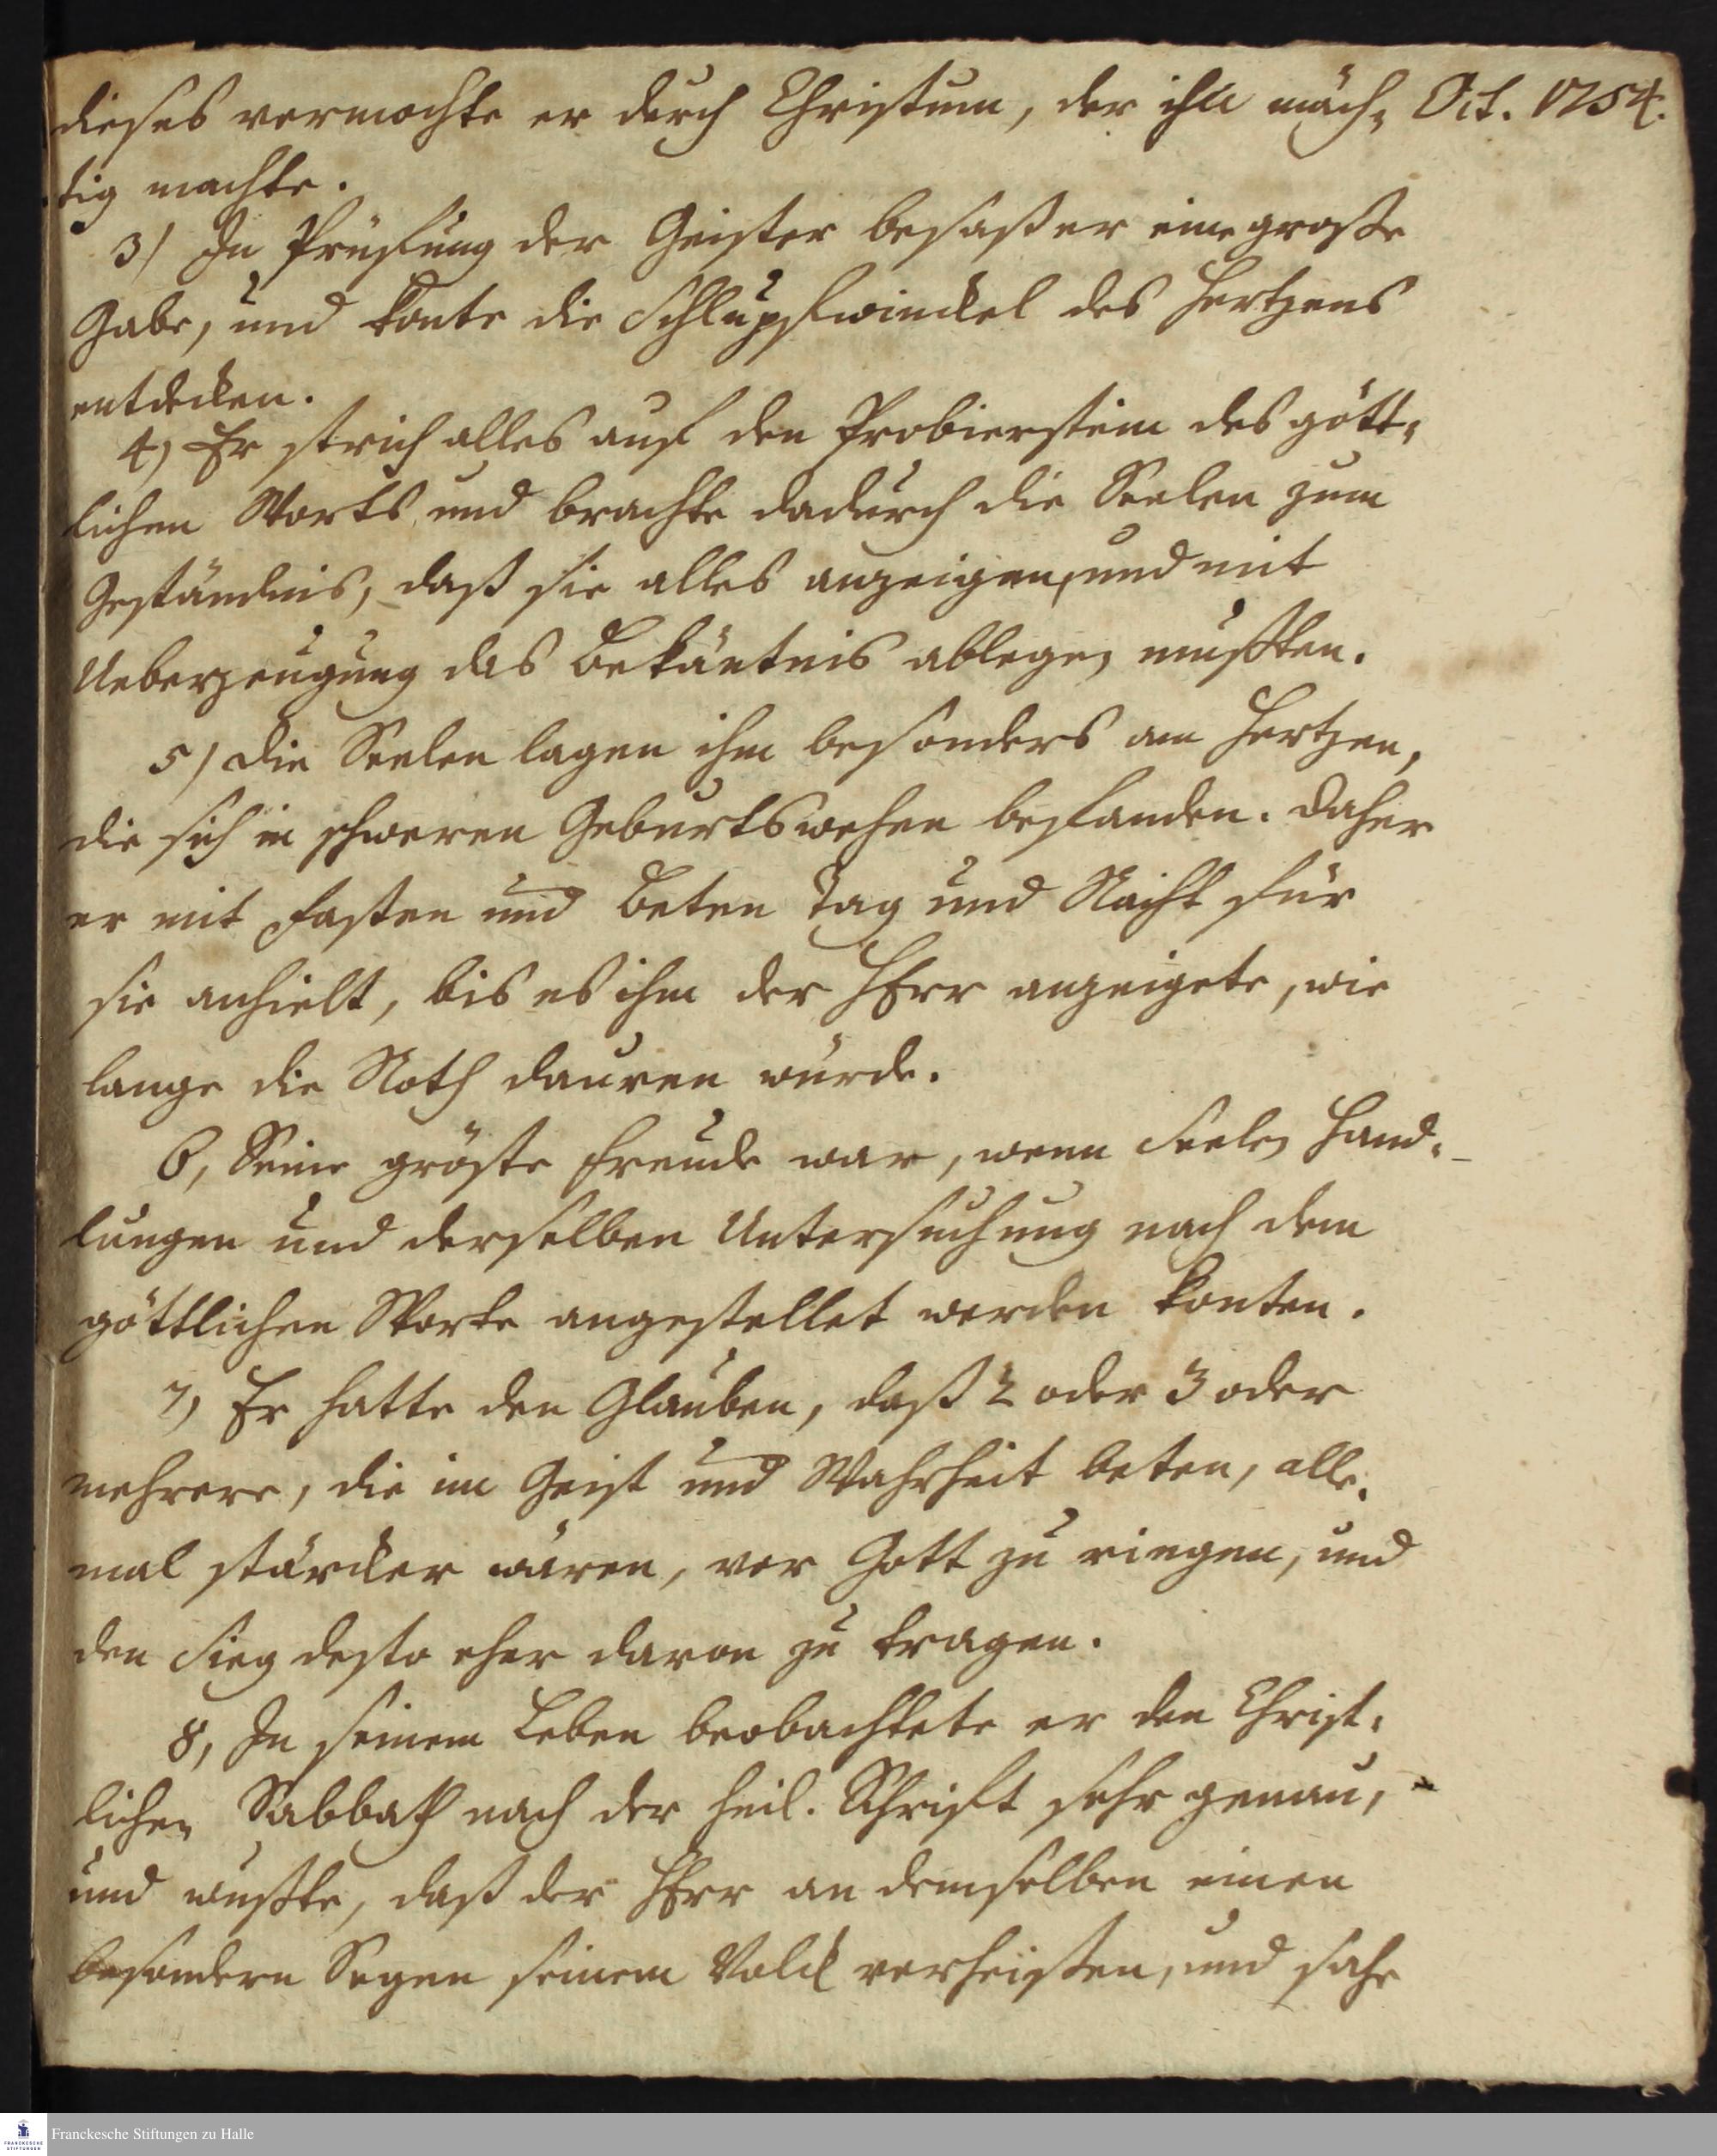 dieses vermochte er durch Christum, der ihn mäch- Oct. 1754.
tig machte.
3) In Prüfung der Geister besaß er eine große
Gabe, und konte die Schlupfwinckel des Hertzens
entdecken.
4) Er strich alles auf den Probierstein des gött-
lichen Worts, und brachte dadurch die Seelen zum
Geständnis, daß sie alles anzeigen, und mit
Ueberzeugung das Bekäntnis ablegen mußten.
5) Die Seelen lagen ihm besonders am Hertzen,
die sich in schweren Geburtswehen befanden. Daher
er mit Fasten und Beten Tag und Nacht für
sie anhielt, bis es ihm der HErr anzeigete, wie
lange die Noth dauren würde.
6, Seine gröste Freude war, wenn Seelen Hand-
lungen und derselben Untersuchung nach dem
göttlichen Worte angestellet werden konten.
7, Er hatte den Glauben, daß 2 oder 3 oder
mehrere, die im Geist und Wahrheit beten, alle-
mal stärcker wären, vor Gott zu ringen, und
den Sieg desto eher davon zu tragen.
8, In seinem Leben beobachtete er den Christ-
lichen Sabbath nach der heil. Schrift sehr genau,
und wußte, daß der HErr an demselben einen
besondern Segen seinem Volck verheißen, und sahe
Franckesche Stiftungen zu Halle
FRANCKESCHE
STIFTUNGEN